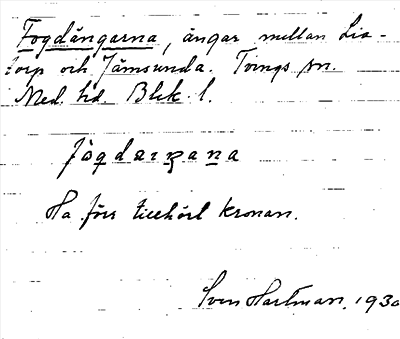 Fogdängarna, ängar mellan Lis-
torp och Jämsunda. Tvings sn.
Med. hd. Blek. l.
Ha förr tillhört kronan.
Sven Hartman. 1930